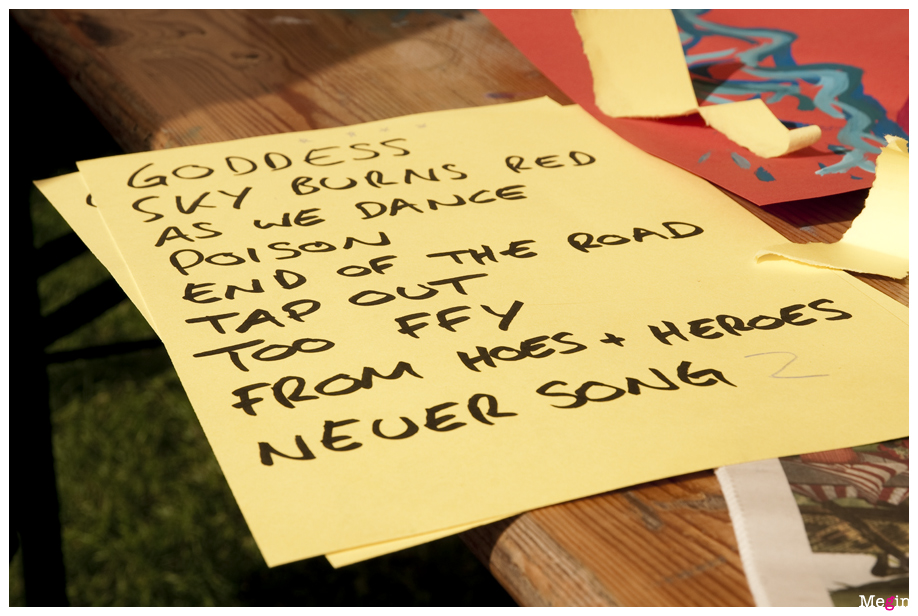 GODDESS
SKY BURNS RED
AS WE DANCE
POISON
END OF THE ROAD
TAP OUT
TOO FFY
FROM HOES + HEROES
NEVER SONG 2
Megin